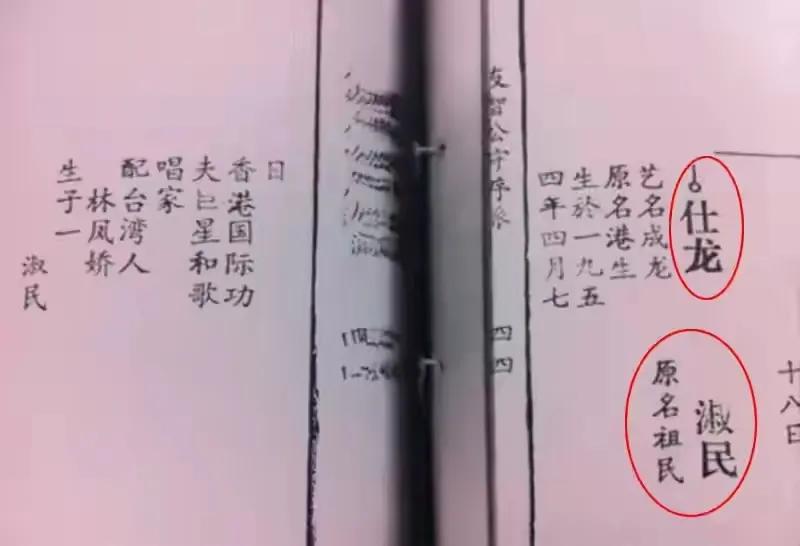 十八日
仕龙
艺名成龙
原名港生
生於一九五
四年四月七
淑民
原名祖民
友智公字序派
四四
日
香港国际功
夫巨星和歌
唱家
配台湾人
林凤娇
生子一
淑民